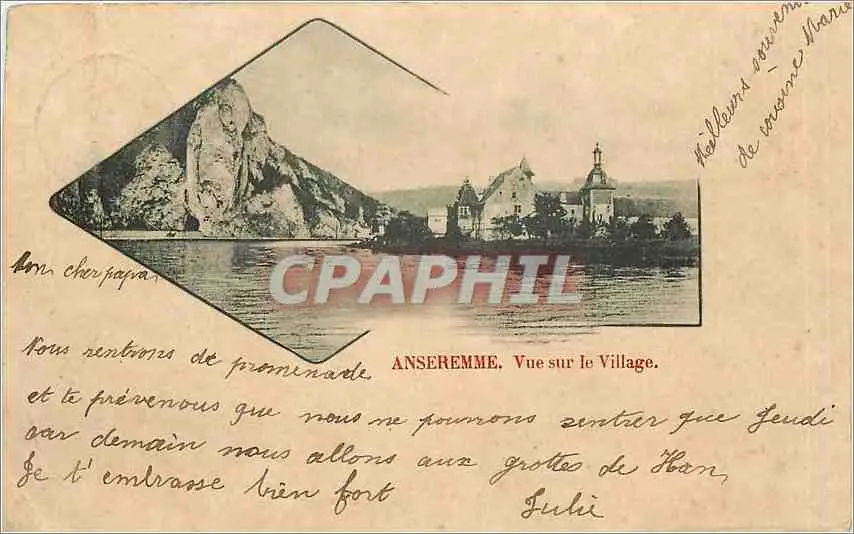 Meilleurs souvenirs
de cousine Marie
CPAPHIL
Mon cher papa,
ANSEREMME. Vue sur le Village.
Nous rentrons de promenade
et te prévenons que nous ne pouvons rentrer que Jeudi
car demain nous allons aux grottes de Han,
Je t'embrasse bien fort
Julie